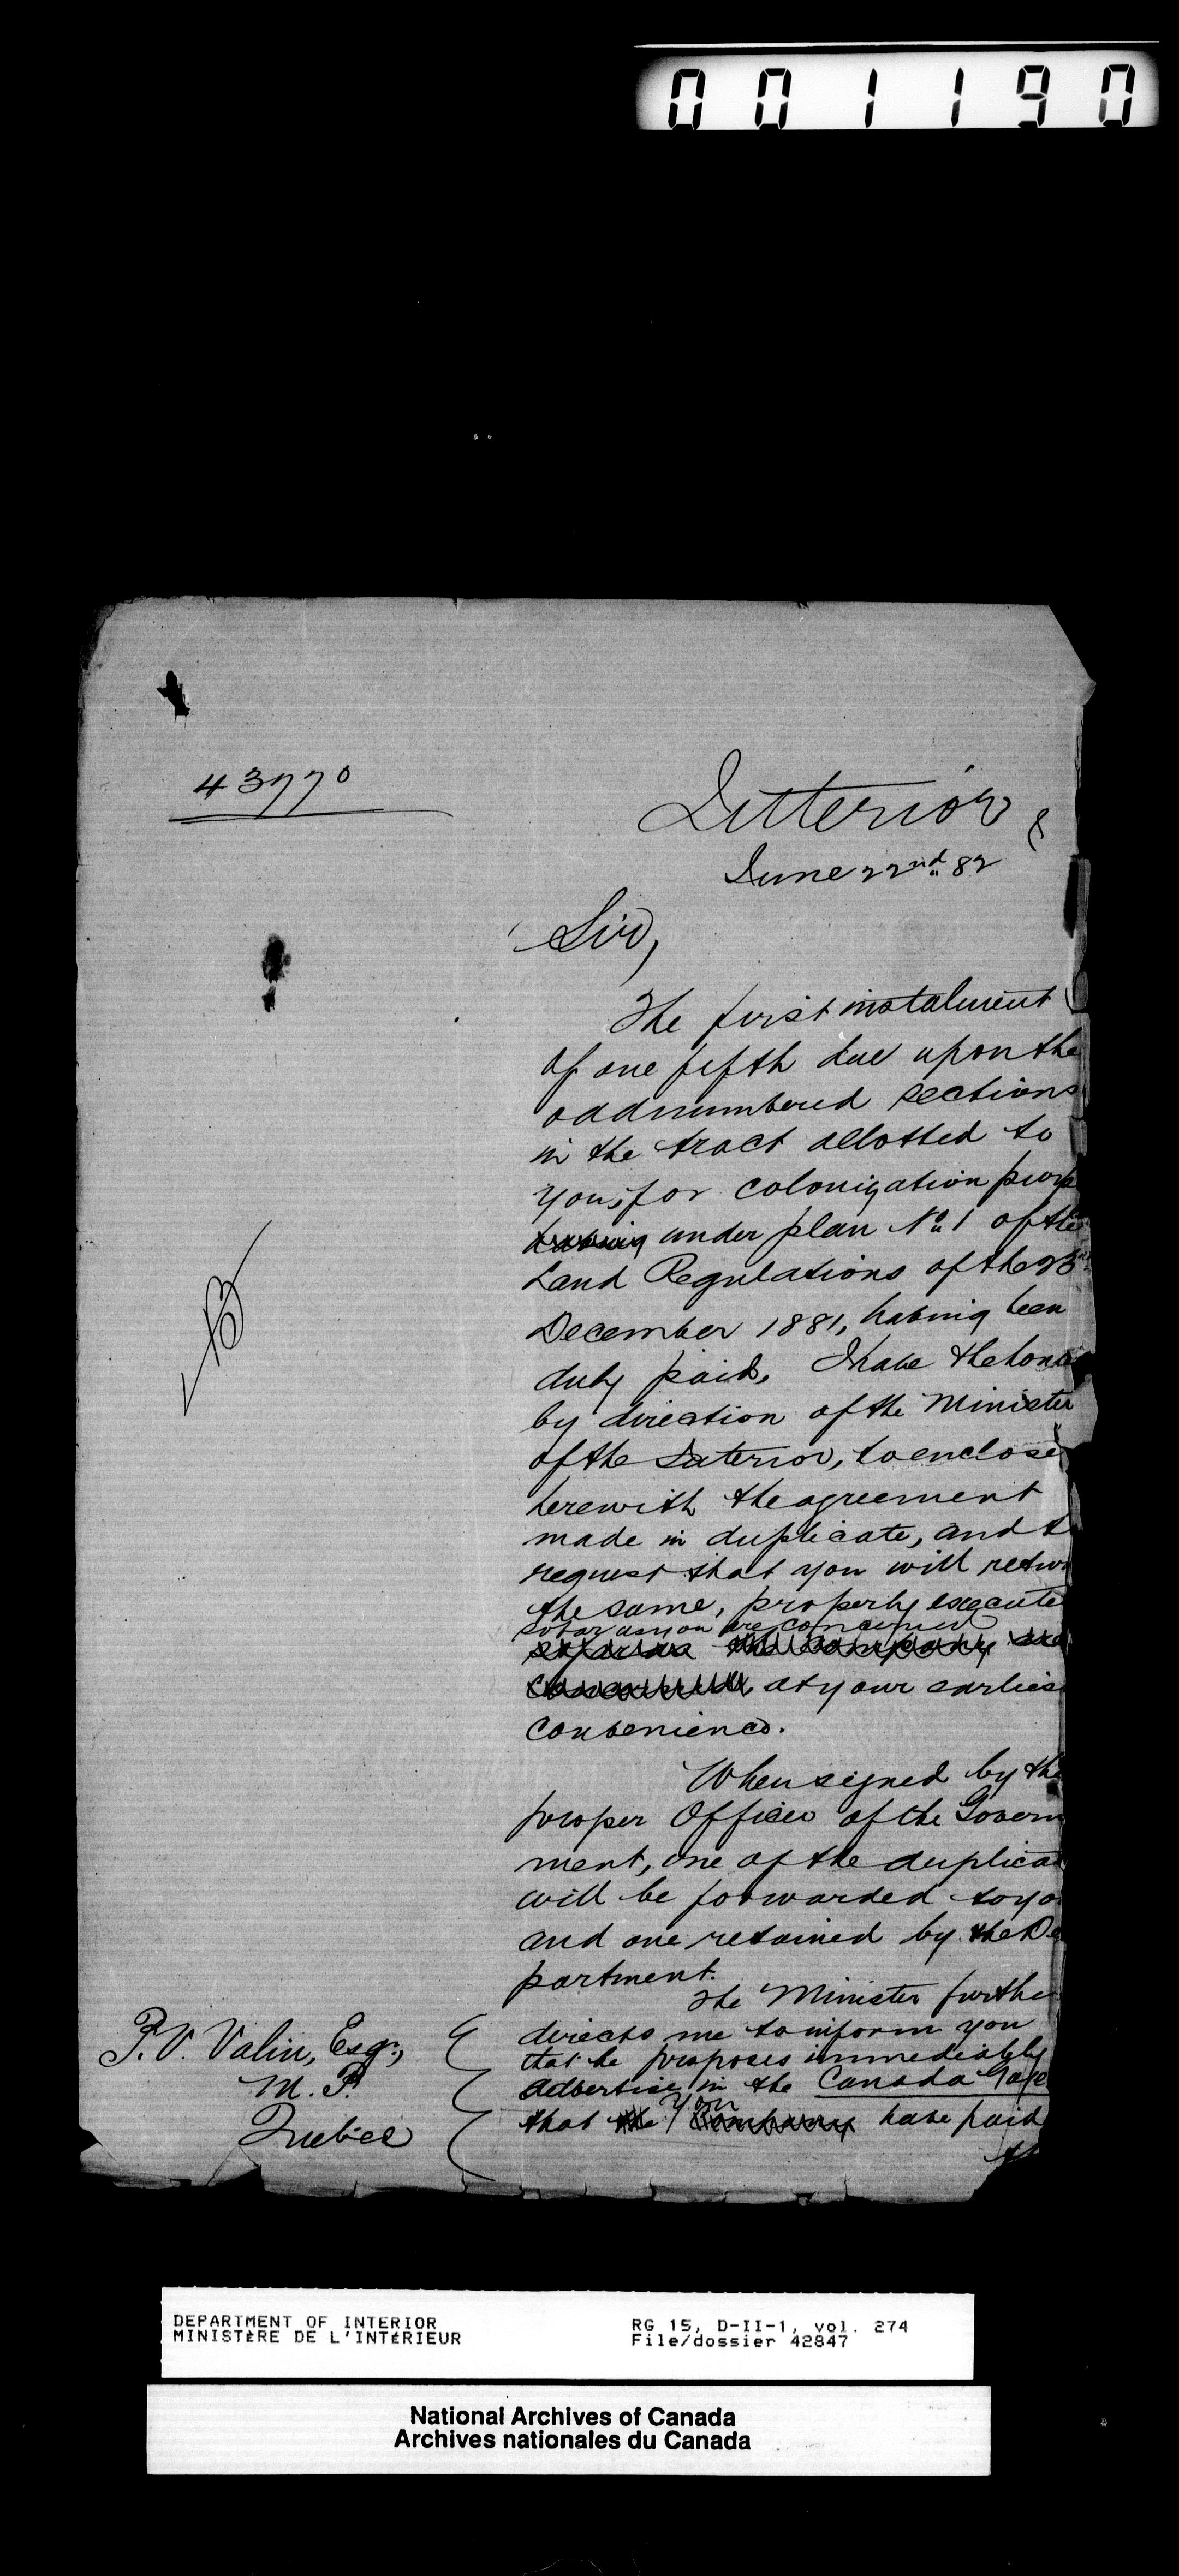 001190
43770
Interior
June 22nd 82
Sir,
The first instalment
of one fifth due upon the
oddnumbered sections
in the tract allotted to
you, for colonization purp
under plan No. 1 of the
Land Regulations of the 23
December 1881, having been
duly paid, I have the hono
by direction of the Minister
of the Interior, to enclose
herewith the agreement
made in duplicate, and t
request that you will retur
the same, properly execute
so far as you are concerned
so far as the Company are
concerned, at your earlies
convenience.
When signed by the
proper Officer of the Govern
ment, one of the duplicat
will be forwarded to yo
and one retained by the De
partment.
The Minister furthe
directs me to inform you
that he proposes immediately
advertise in the Canada Gaze
you
that the Company have paid
th
P. V. Valin, Esqr.,
M. P.
Quebec
DEPARTMENT OF INTERIOR
MINISTÈRE DE L'INTÉRIEUR
RG 15, D-II-1, vol. 274
File/dossier 42847
National Archives of Canada
Archives nationales du Canada